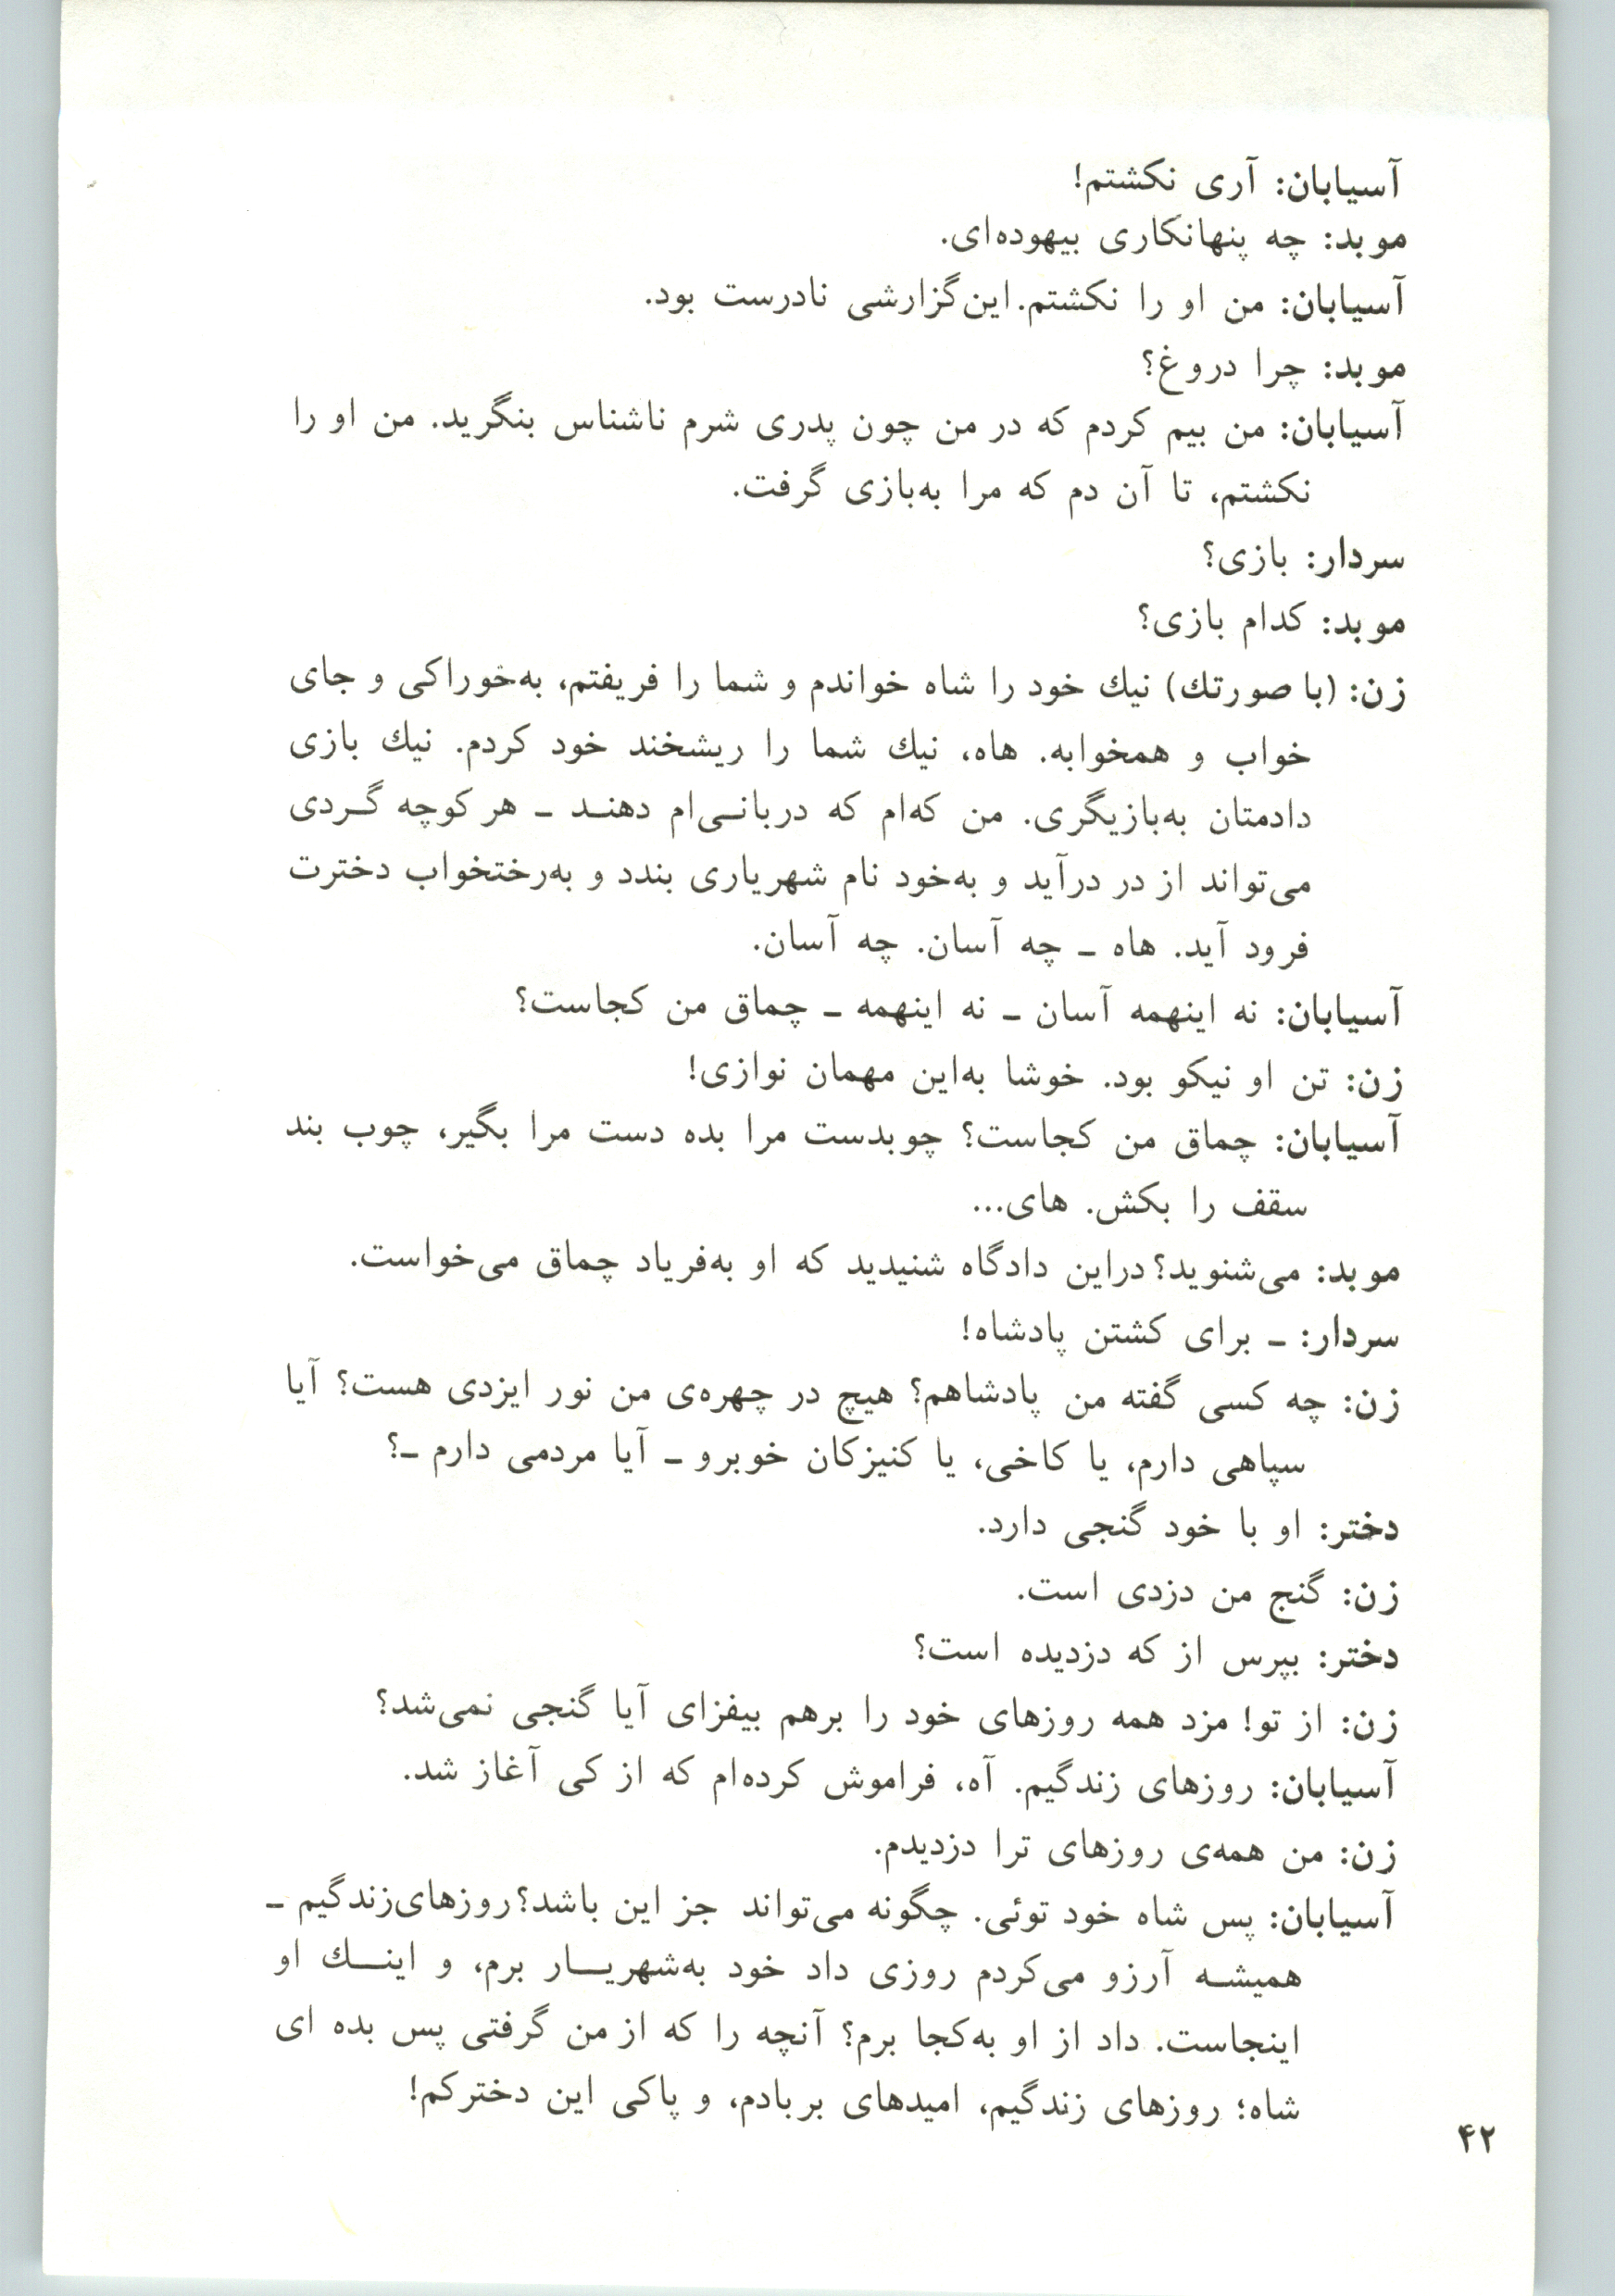 آسیابان: آری نکشتم!
موبد: چه پنهانکاری بیهوده‌ای.
آسیابان: من او را نکشتم. این گزارشی نادرست بود.
موبد: چرا دروغ؟
آسیابان: من بیم کردم که در من چون پدری شرم ناشناس بنگرید. من او را
نکشتم، تا آن دم که مرا به‌بازی گرفت.
سردار: بازی؟
موبد: کدام بازی؟
زن: (با صورتك) نيك خود را شاه خواندم و شما را فریفتم، به‌خوراکی و جای
خواب و همخوابه. هاه، نيك شما را ریشخند خود کردم. نيك بازی
دادمتان به‌بازیگری. من که‌ام که دربانی‌ام دهند ـ هر کوچه گردی
می‌تواند از در درآید و به‌خود نام شهریاری بندد و به‌رختخواب دخترت
فرود آید. هاه ـ چه آسان. چه آسان.
آسیابان: نه اینهمه آسان ـ نه اینهمه ـ چماق من کجاست؟
زن: تن او نیکو بود. خوشا به‌این مهمان نوازی!
آسیابان: چماق من کجاست؟ چوبدست مرا بده دست مرا بگیر، چوب بند
سقف را بکش. های...
موبد: می‌شنوید؟ دراین دادگاه شنیدید که او به‌فریاد چماق می‌خواست.
سردار: ـ برای کشتن پادشاه!
زن: چه کسی گفته من پادشاهم؟ هیچ در چهره‌ی من نور ایزدی هست؟ آیا
سپاهی دارم، یا کاخی، یا کنیزکان خوبرو ـ آیا مردمی دارم ـ؟
دختر: او با خود گنجی دارد.
زن: گنج من دزدی است.
دختر: بپرس از که دزدیده است؟
زن: از تو! مزد همه روزهای خود را برهم بیفزای آیا گنجی نمی‌شد؟
آسیابان: روزهای زندگیم. آه، فراموش کرده‌ام که از کی آغاز شد.
زن: من همه‌ی روزهای ترا دزدیدم.
آسیابان: پس شاه خود توئی. چگونه می‌تواند جز این باشد؟ روزهای‌زندگیم ـ
همیشه آرزو می‌کردم روزی داد خود به‌شهریار برم، و اینك او
اینجاست. داد از او به‌کجا برم؟ آنچه را که از من گرفتی پس بده ای
شاه؛ روزهای زندگیم، امیدهای بربادم، و پاکی این دخترکم!
۴۲